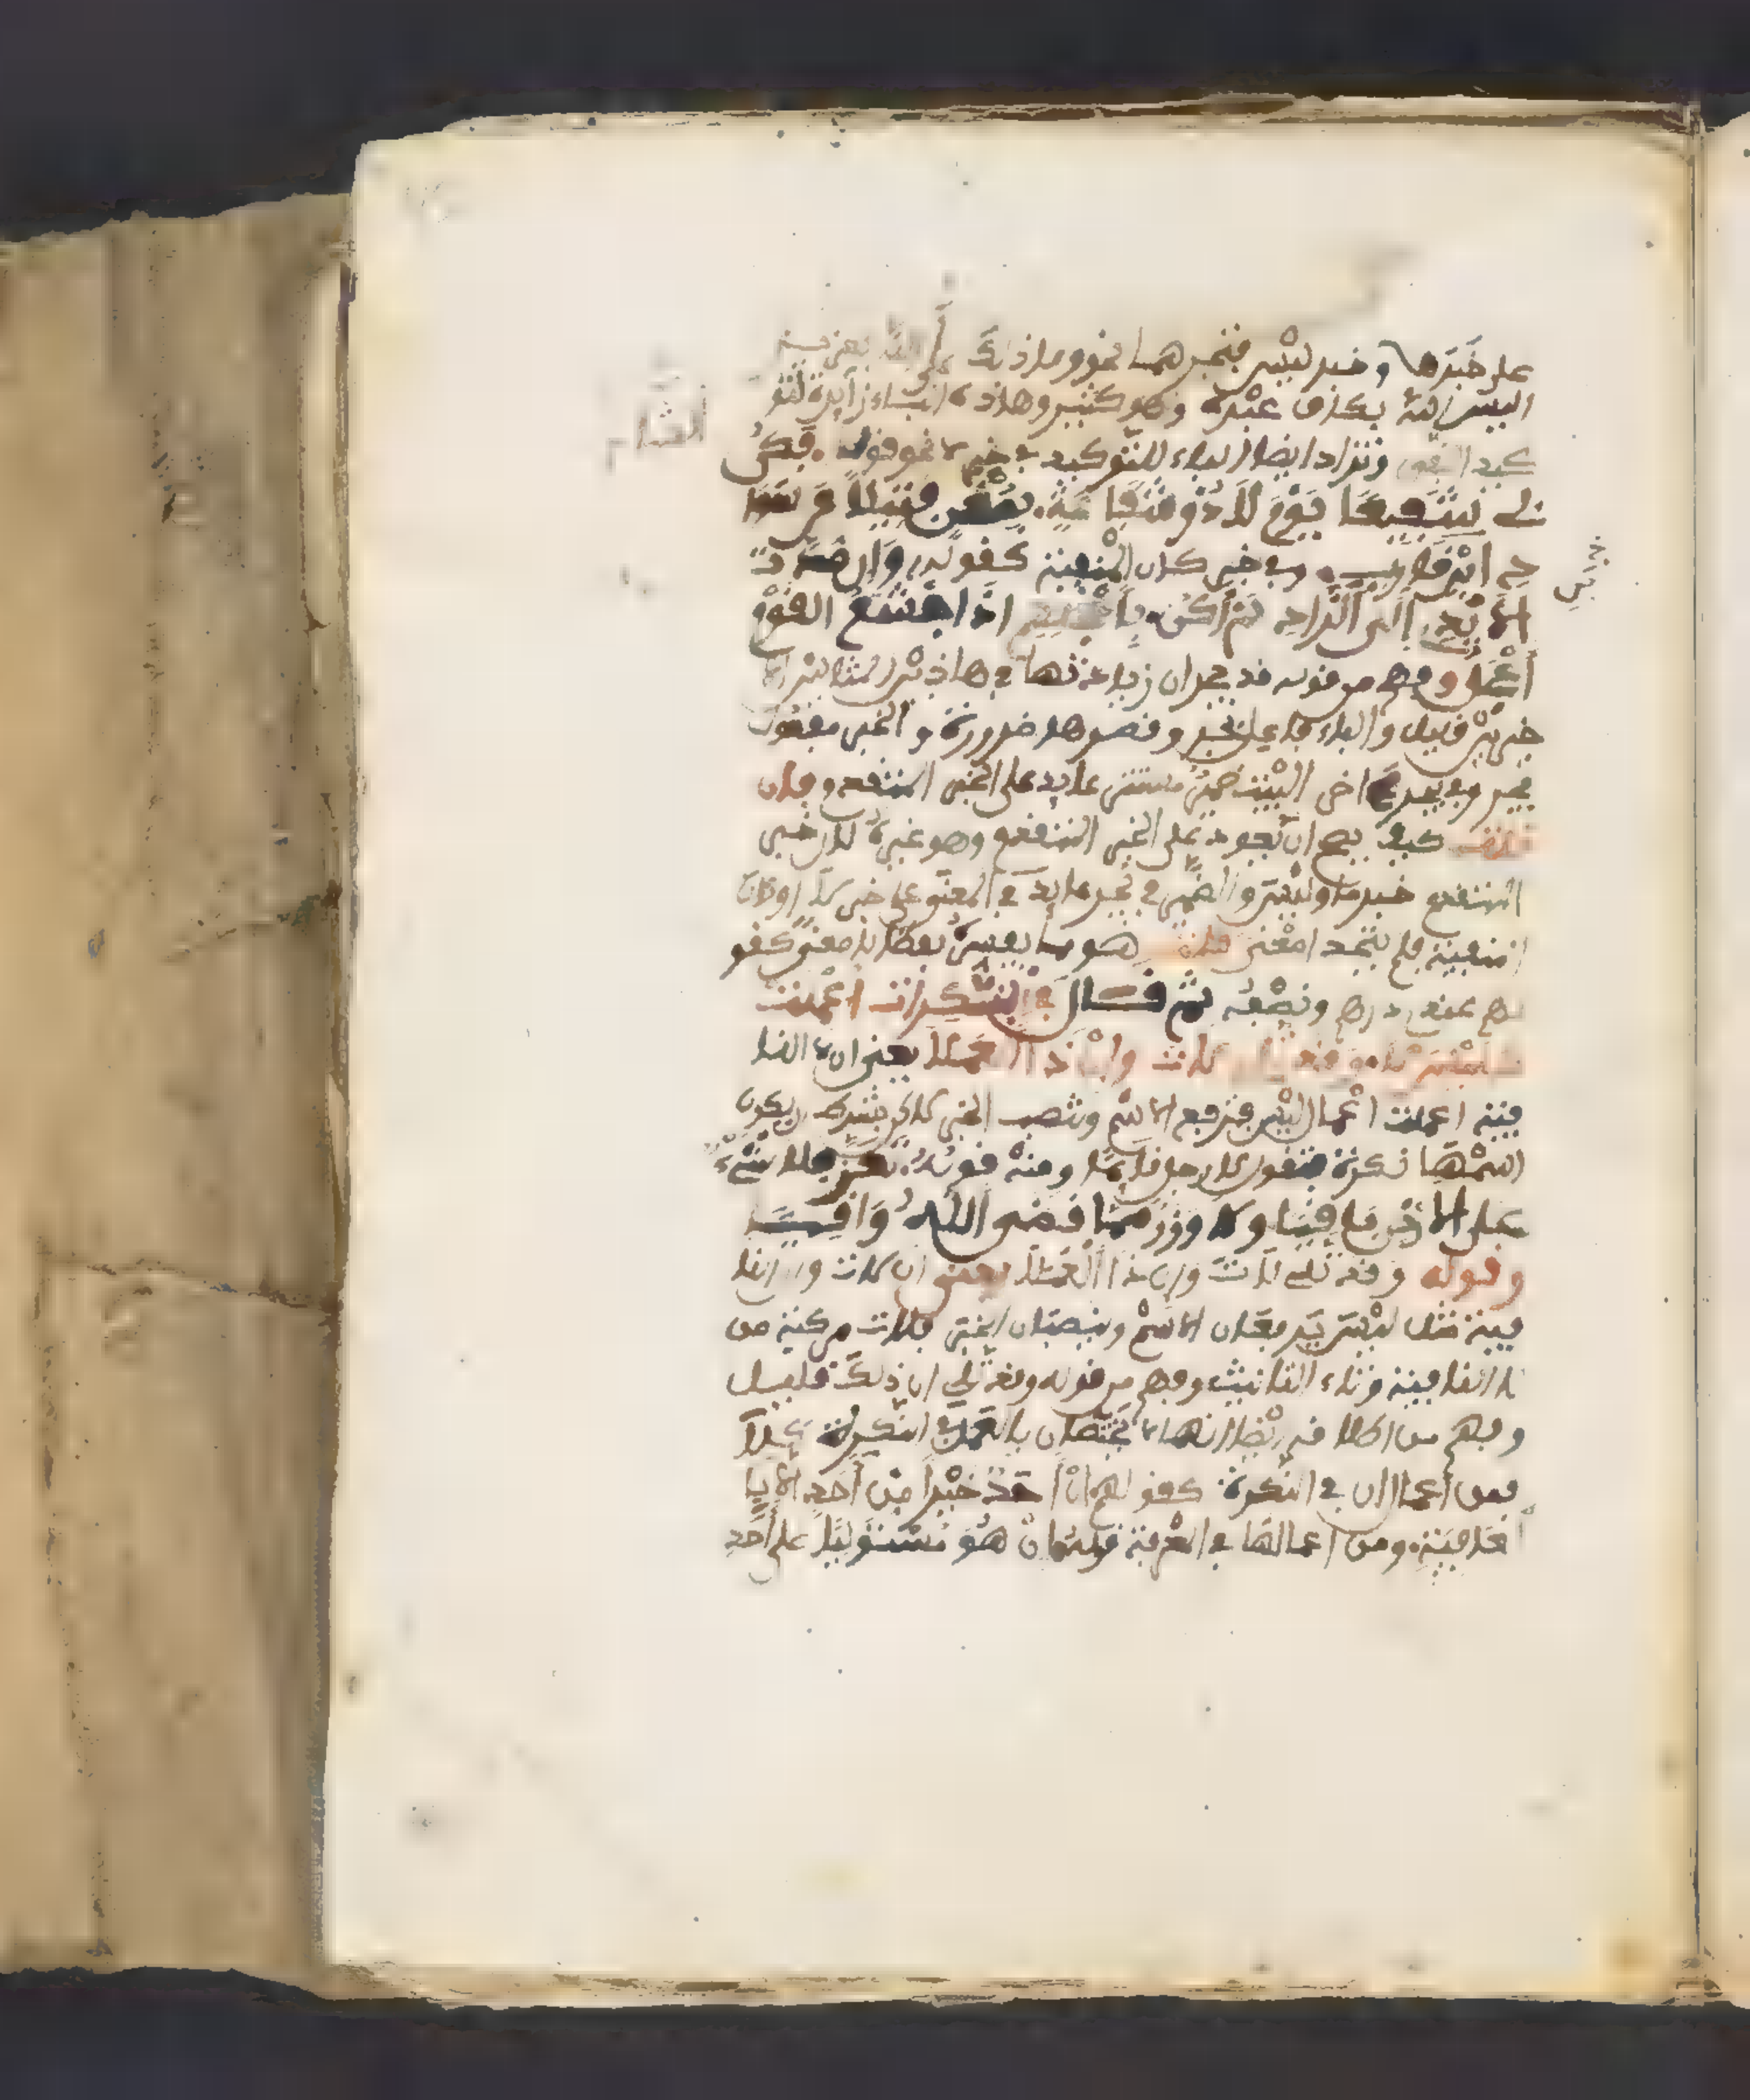 على خبرها وخبر ليس فتجرهما نحو وما ذلك على الله بعزيز
اليس الله بكاف عبده وهو كثير وهاذه الباء زايدة لتو
كيد النفي وتزاد ايضا الباء للتوكيد في خبر لا نحو قوله فكن
لي شفيعا يوم لا ذو شفاعة بمغن فتيلا عن سوا
د ابن قارب وفي خبر كان المنفية كقوله وان مدت
الايدي الى الزاد لم أكن بأعجلهم اذ اجشع القوم
أعجل وفهم من قوله قد يجر ان زيادتها في هاذين المثالين
خبرين قليل والباء فاعل بجر وقصرها ضرورة والخبر مفعول
بجر وفي يجر اخر البيت ضمير مستتر عايد على الخبر المتقدم فان
قلت كيف يصح ان يعود على الخبر المتقدم وهو غيره لان خبر
المتقدم خبر ما وليس والضمير في يجر عايد في المعنى على خبر لا او كان
المنفية فلم يتحد امعنى قلت هو مما يفسره لفظا لا معنى كقو
لهم عندي درهم ونصفه ثم قال في النكرات أعملت
كليس لا وقد تلي لات وان ذا العملا يعني ان لا النا
فية اعملت اعمال ليس فترفع الاسم وتنصب الخبر لاكن بشرط ان يكون
اسمها نكرة فتقول لا رجل قايما ومنه قوله تعز فلا شيء
على الارض باقيا ولا وزر مما قضى الله واقيا
وقوله وقد تلي لات وان ذا العملا يعني ان لات وان النا
فية مثل ليس يرفعان الاسم وينصبان الخبر فلات مركبة من
لا النافية وتاء التانيث وفهم من قوله وقد تلي ان ذلك قليل
وفهم من اطلاقه ايضا انهما لا يختصان بالعمل في النكرة كلا
فمن اعمال ان في النكرة كقولهم ان احد خيرا من احد الا با
لعافية ومن اعمالها في المعرفة قوله ان هو مستوليا على احد